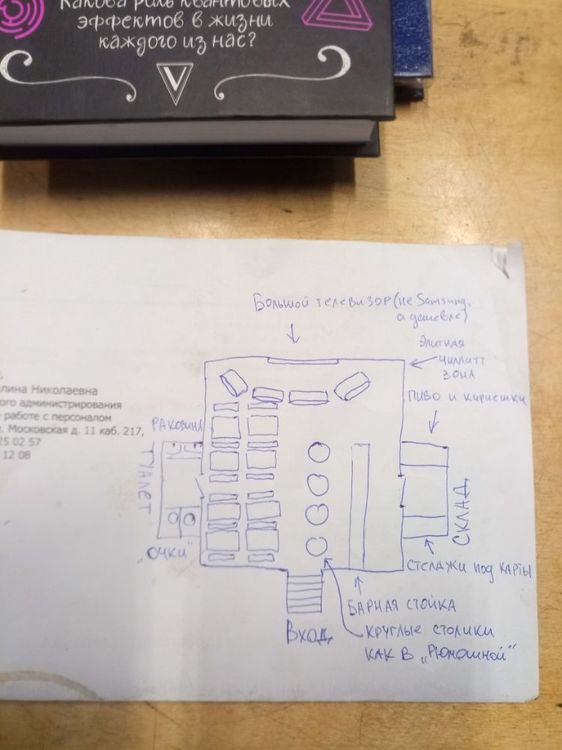 Какова роль квантовых
эффектов в жизни
каждого из нас?
V
Большой телевизор (не Samsung,
а дешевле)
Элитная
чиллитт
зона
Пиво и кириешки
лина Николаевна
ого администрирования
работе с персоналом
Московская д. 11 каб. 217,
25 02 57
12 08
Раковины
Туалет
"очки"
Склад
Стелажи под карты
Барная стойка
Вход
Круглые столики
как в „Рюмошной"